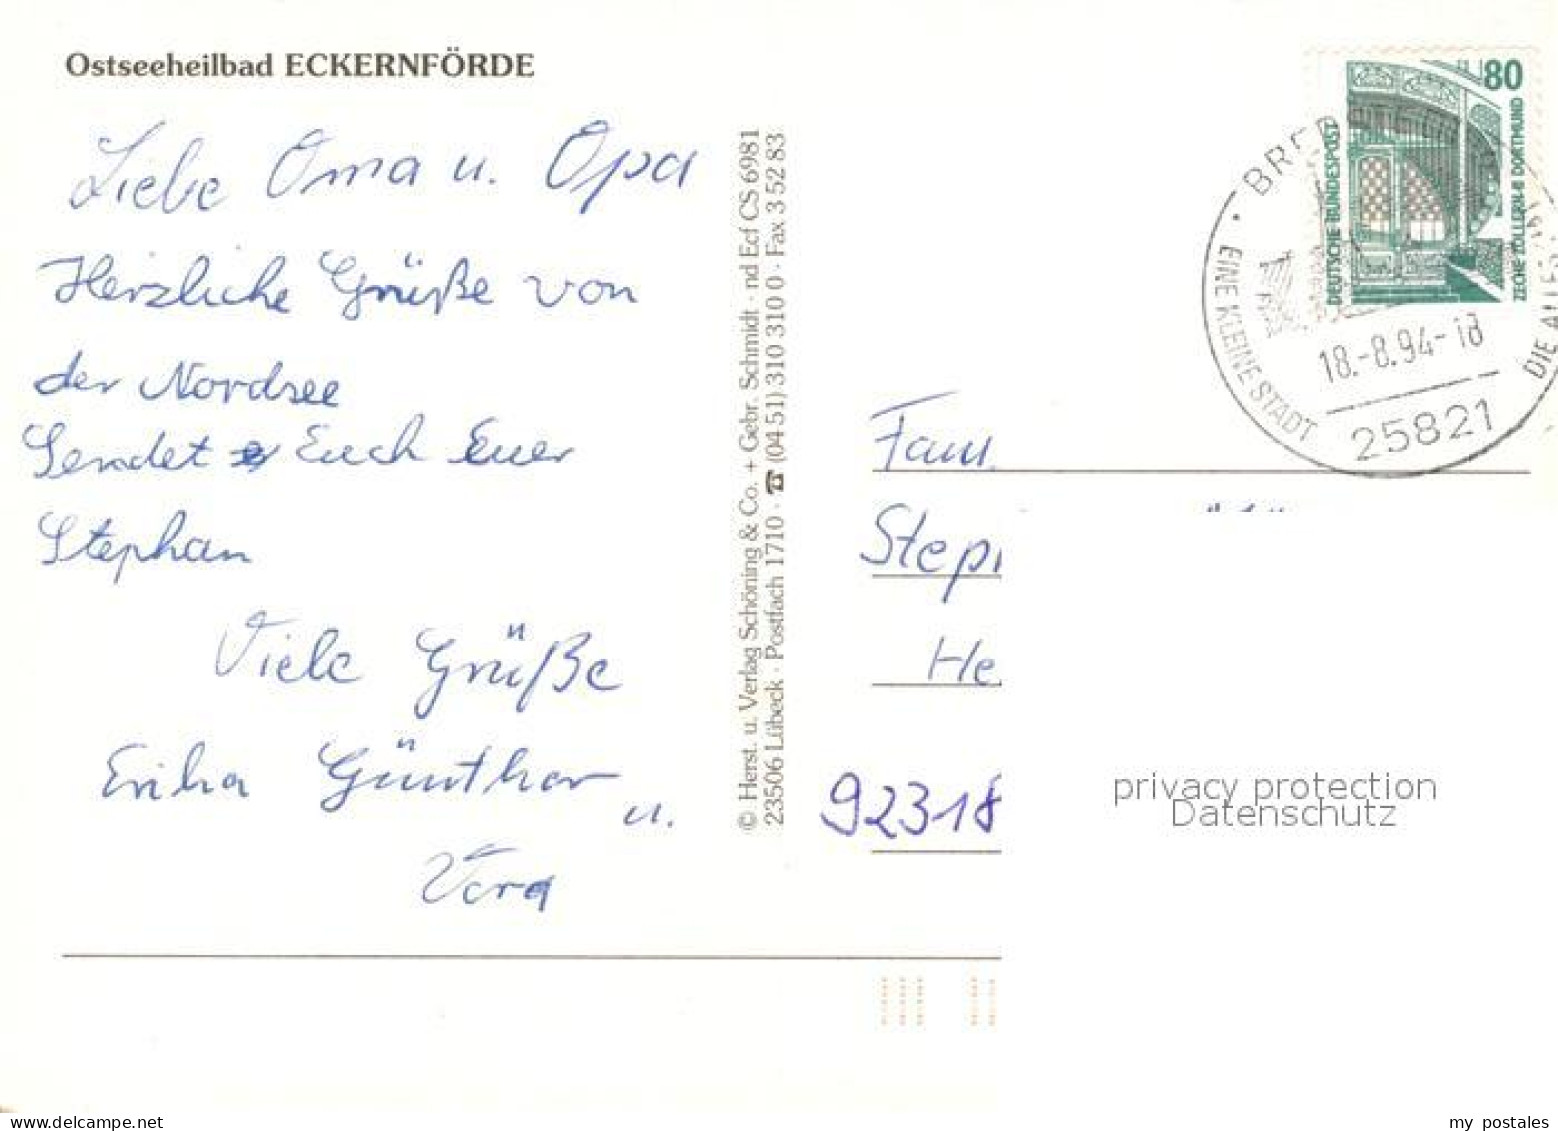 Ostseeheilbad ECKERNFÖRDE
Liebe Oma u. Opa
Herzliche Grüße von
der Nordsee
Sendet Euch Euer
Stephan
Viele Grüße
Erika Günther
u.
Vera
© Herst. u. Verlag Schöning & Co. + Gebr. Schmidt · nd Ecf CS 6981
23506 Lübeck · Postfach 1710 · ☎ (04 51) 310 310 0 · Fax 3 52 83
80
DEUTSCHE BUNDESPOST
ZECHE ZOLLERN II DORTMUND
BRED
EINE KLEINE STADT
DIE ALLES
18.-8.94-18
25821
Fam.
Step
He
92318
privacy protection
Datenschutz
my postales